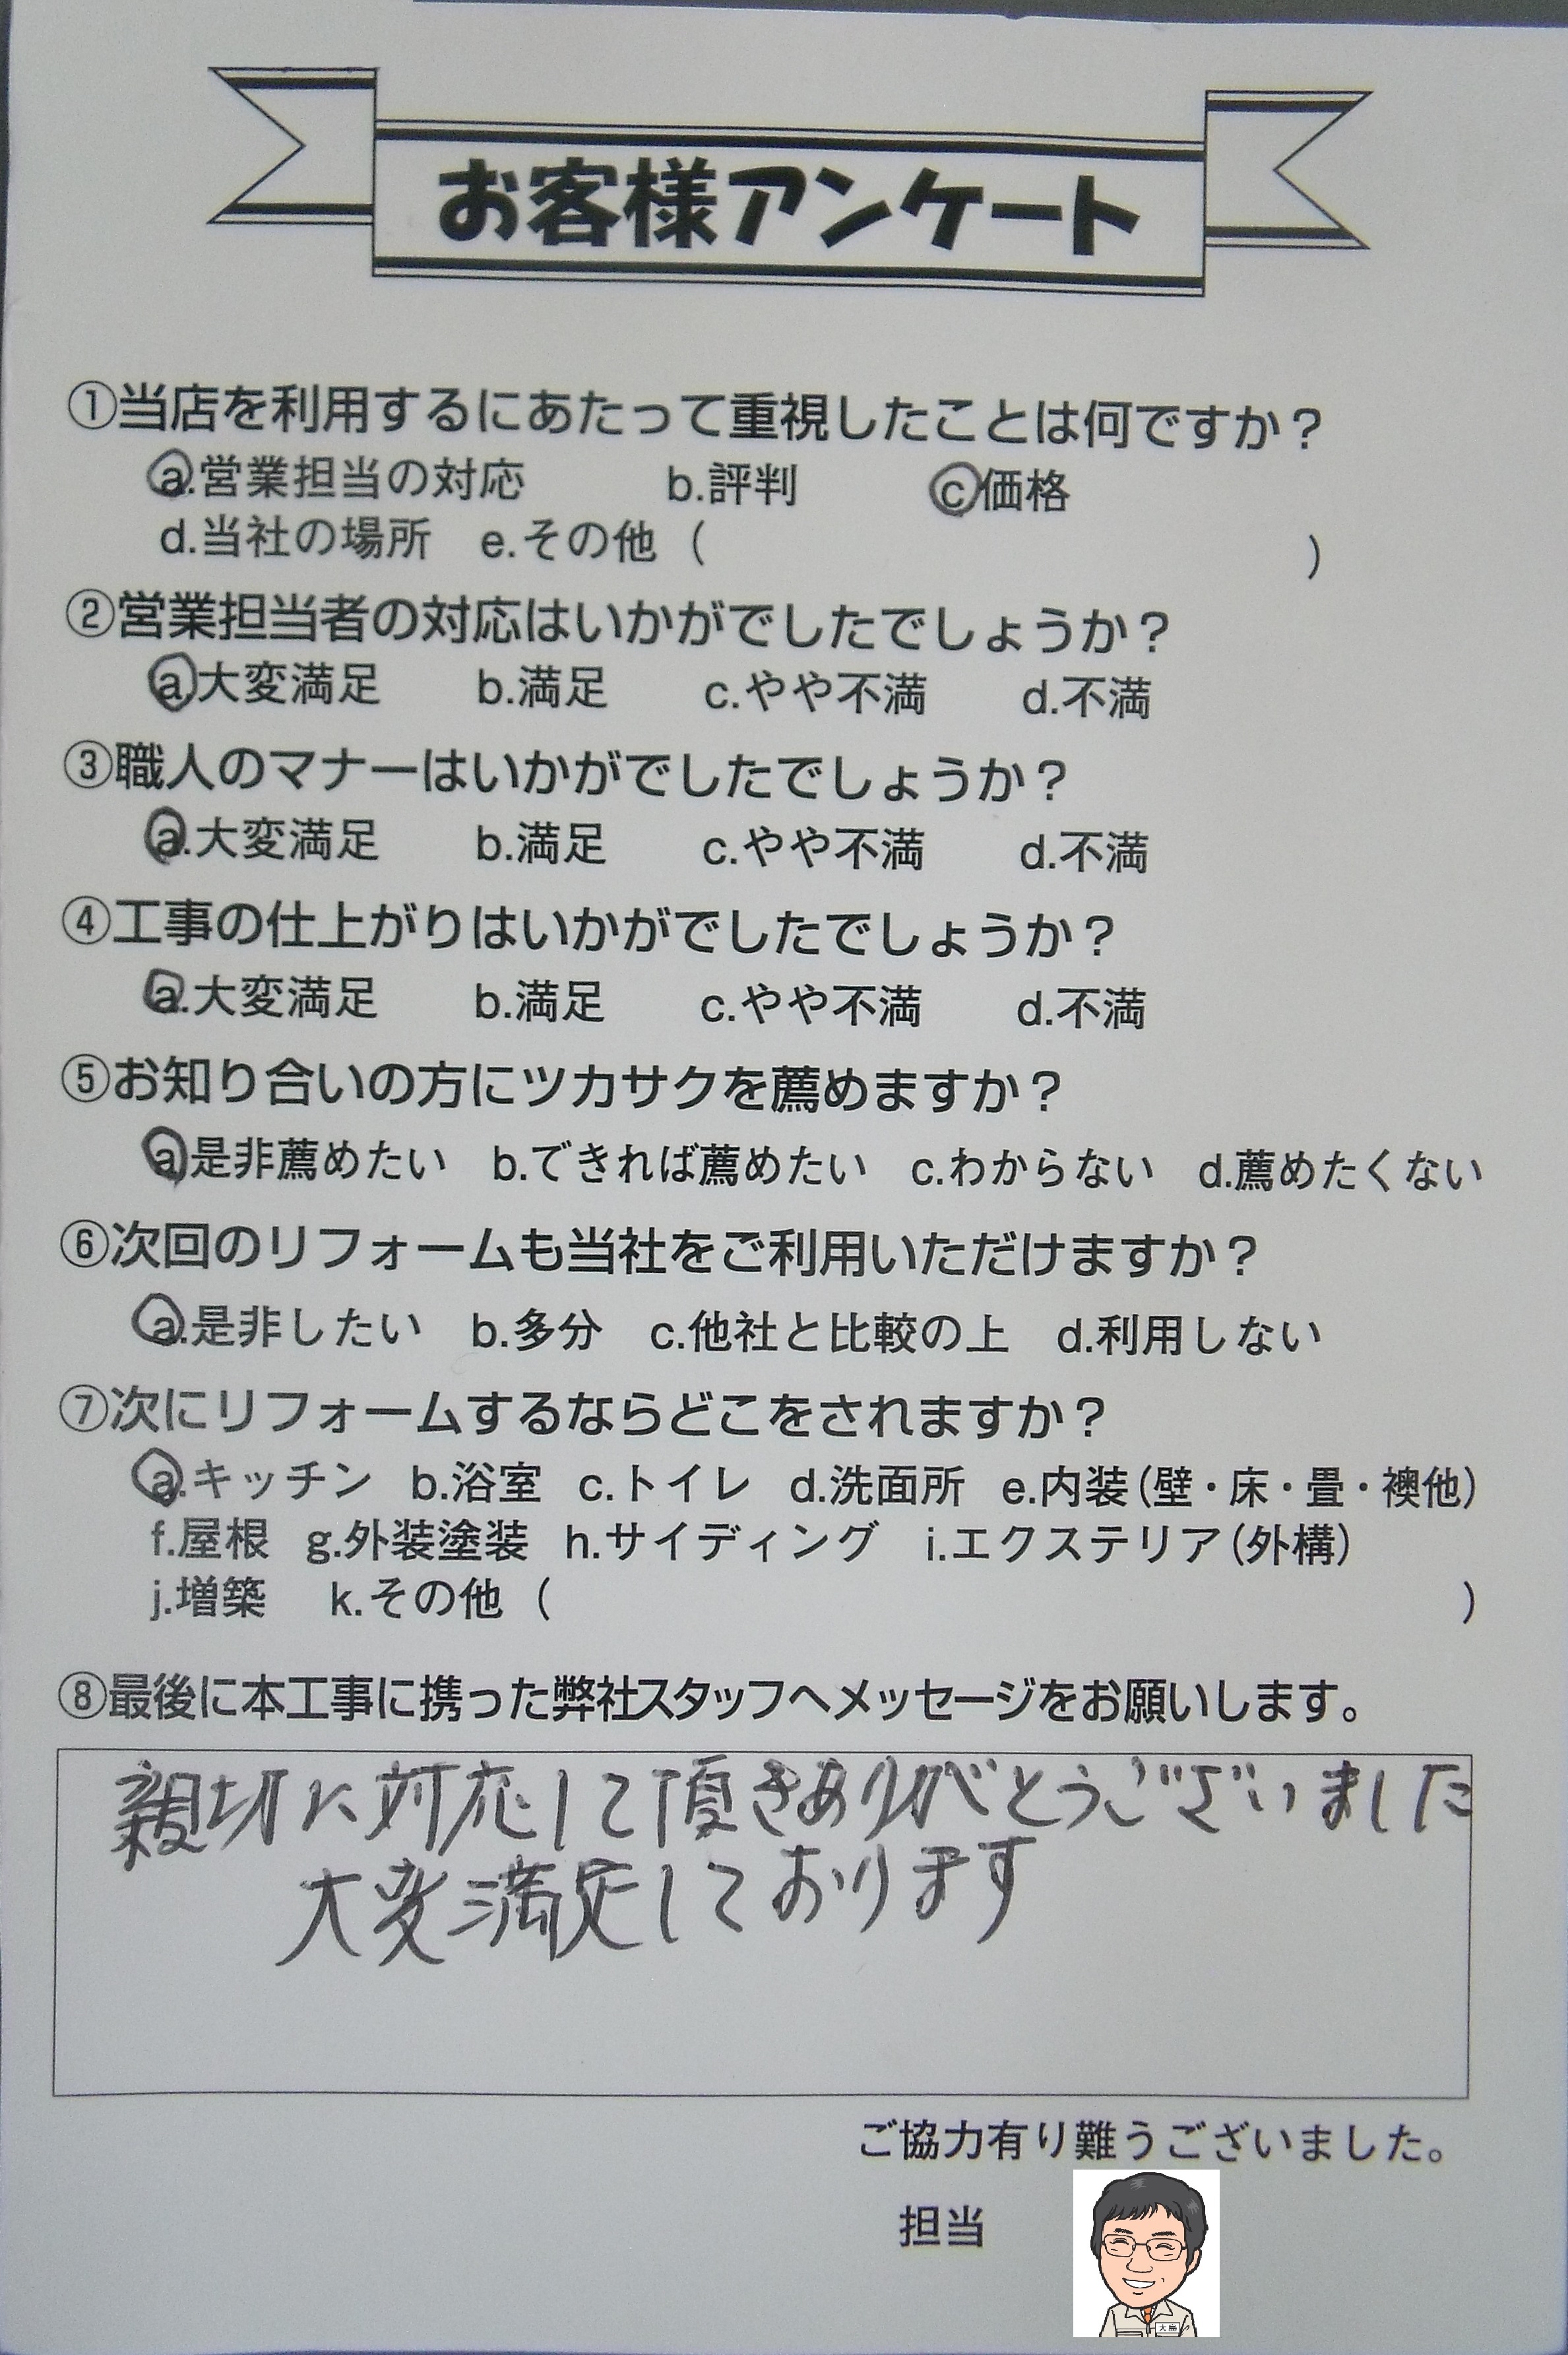 お客様アンケート
①当店を利用するにあたって重視したことは何ですか？
a.営業担当の対応 b.評判 c.価格
d.当社の場所 e.その他（ ）
②営業担当者の対応はいかがでしたでしょうか？
a.大変満足 b.満足 c.やや不満 d.不満
③職人のマナーはいかがでしたでしょうか？
a.大変満足 b.満足 c.やや不満 d.不満
④工事の仕上がりはいかがでしたでしょうか？
a.大変満足 b.満足 c.やや不満 d.不満
⑤お知り合いの方にツカサクを薦めますか？
a.是非薦めたい b.できれば薦めたい c.わからない d.薦めたくない
⑥次回のリフォームも当社をご利用いただけますか？
a.是非したい b.多分 c.他社と比較の上 d.利用しない
⑦次にリフォームするならどこをされますか？
a.キッチン b.浴室 c.トイレ d.洗面所 e.内装（壁・床・畳・襖他）
f.屋根 g.外装塗装 h.サイディング i.エクステリア（外構）
j.増築 k.その他（ ）
⑧最後に本工事に携った弊社スタッフへメッセージをお願いします。
親切に対応して頂きありがとうございました
大変満足しております
ご協力有り難うございました。
担当